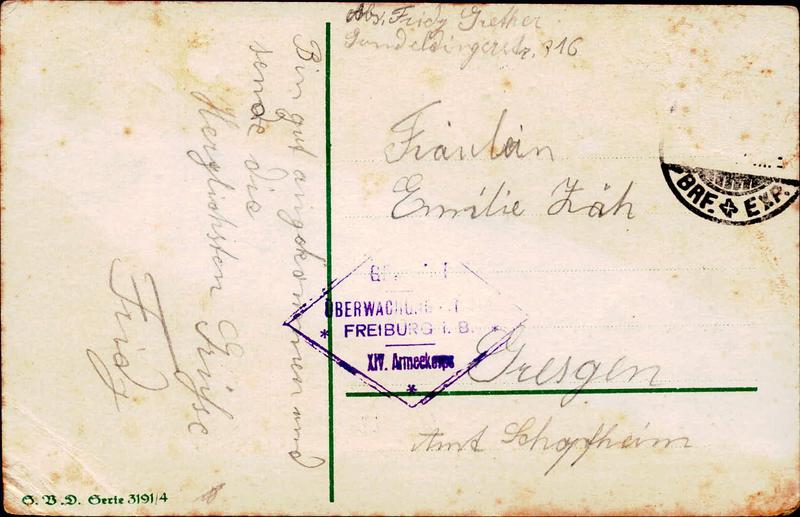 Abs. Fridy Grether
Gundeldingerstr. 316
Bin gut angekommen und
sende die
Herzlichsten Grüsse
Frid
Fräulein
Emilie Zäh
Gresgen
Amt Schopfheim
BRF. EXP.
ÜBERWACHUNGS
* FREIBURG i. B. *
XIV. Armeekorps
*
S. V. D. Serie 3191/4